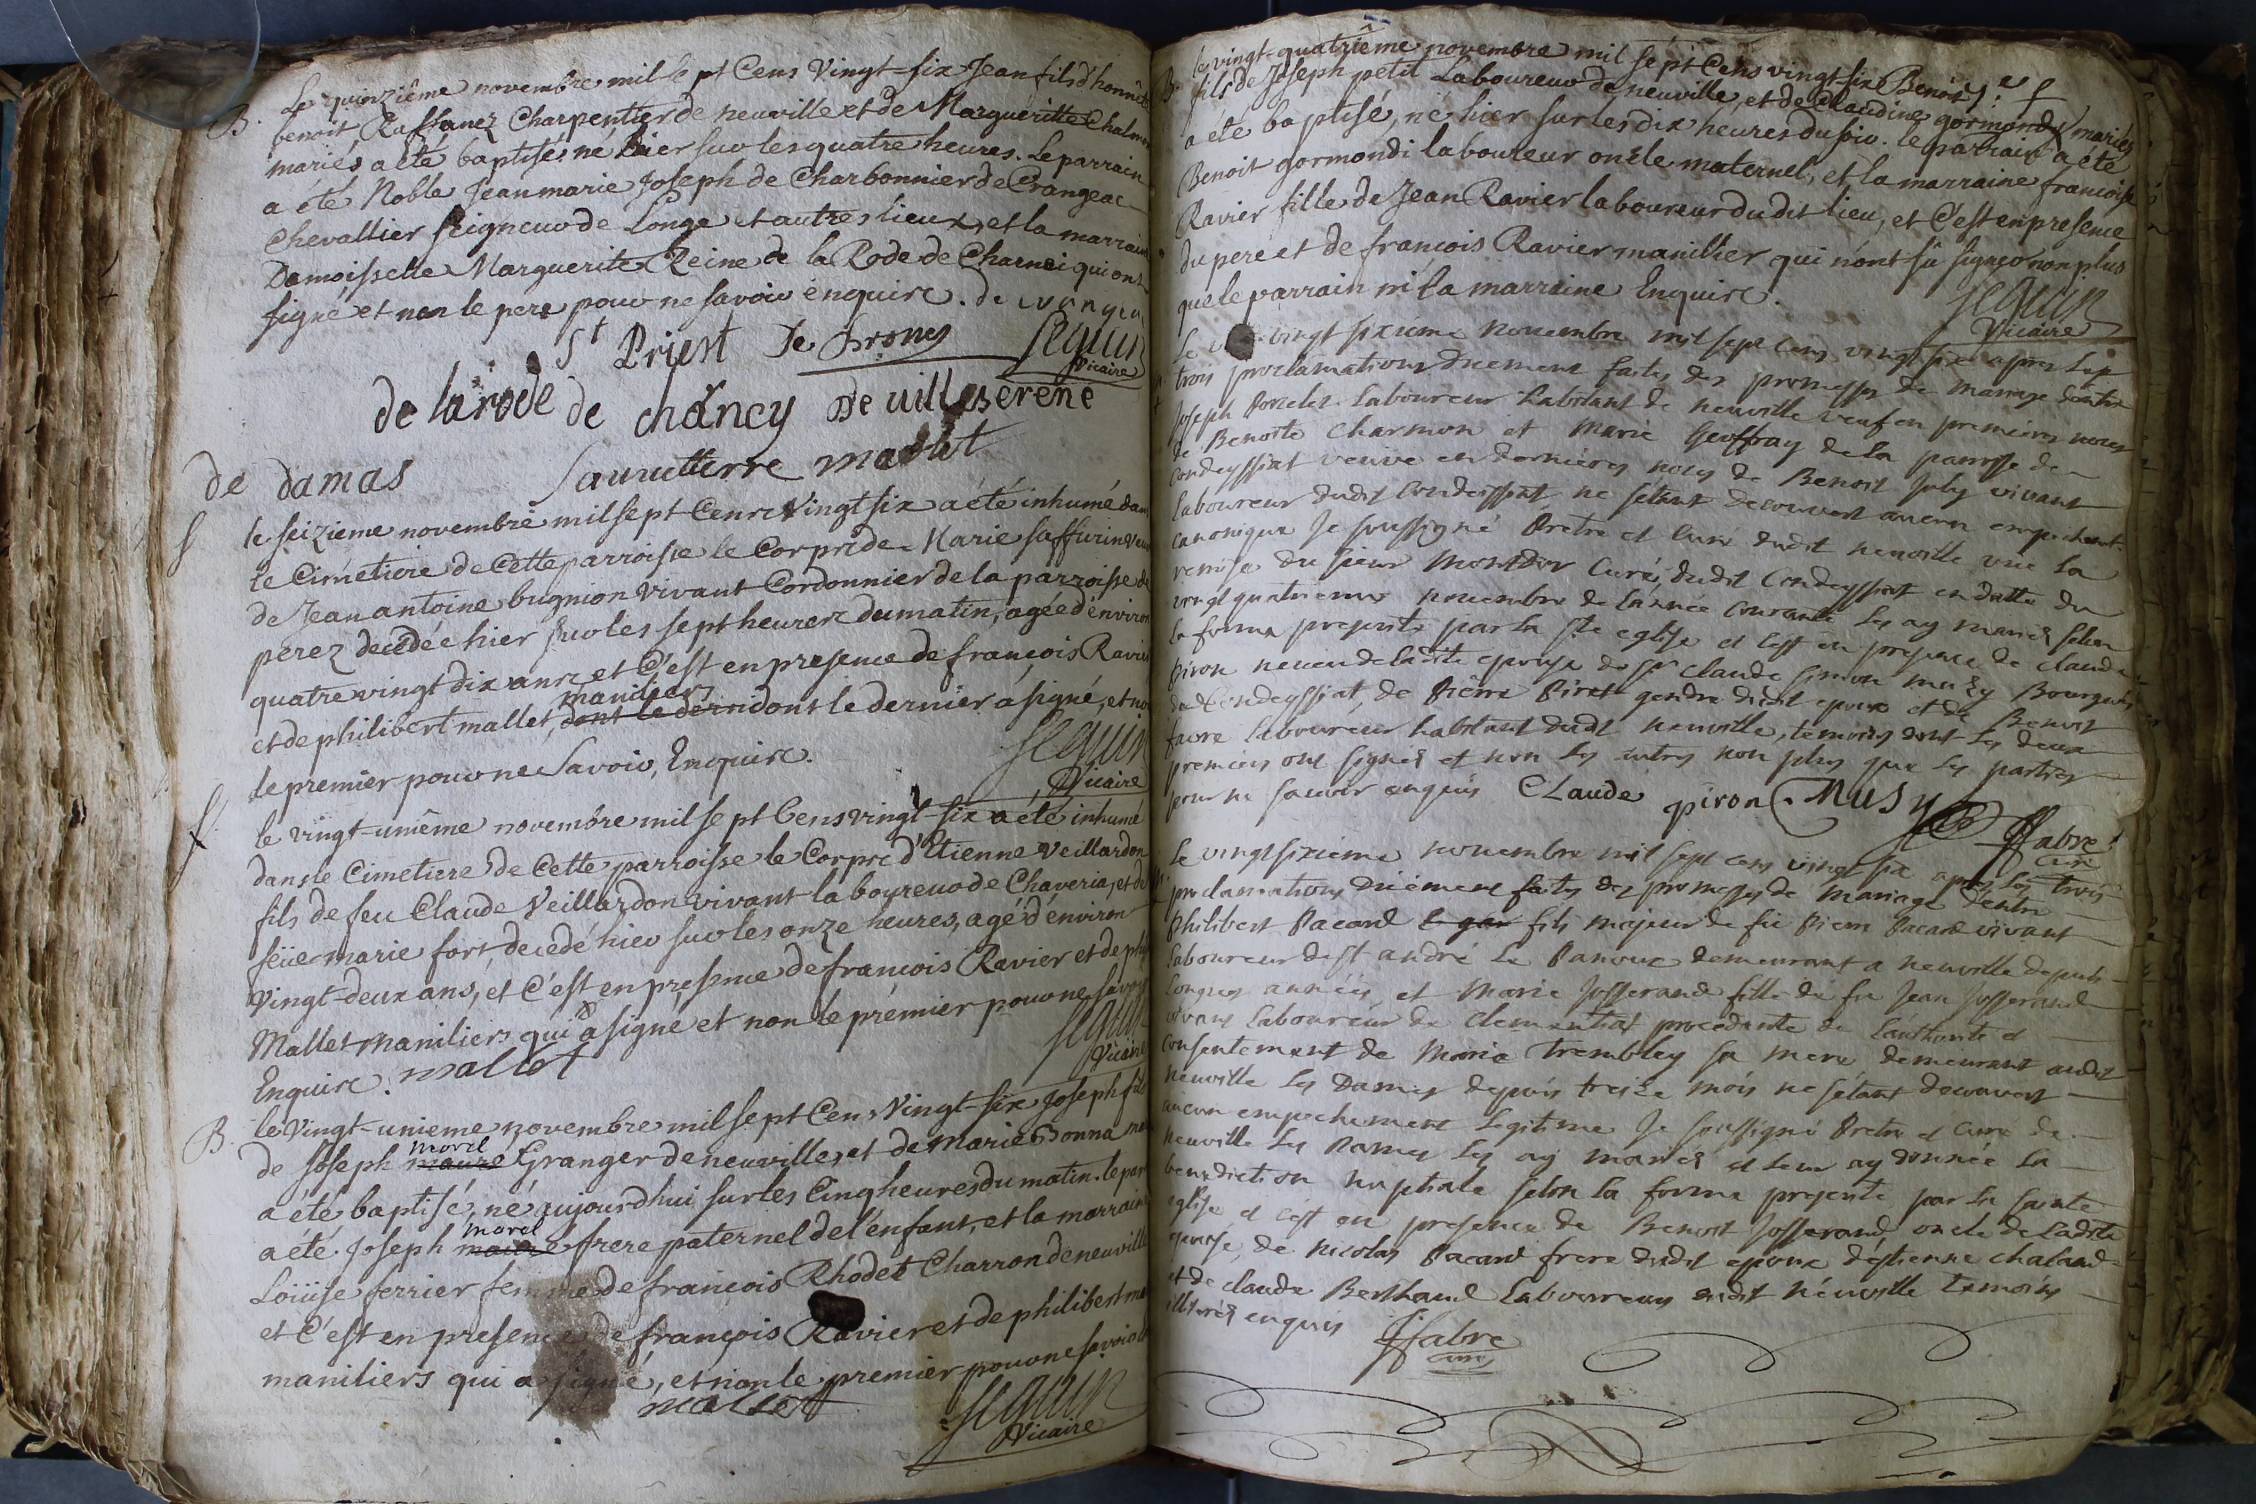 B. Le quinziême novembre mil sept Cens Vingt-six Jean fils d'honnête
benoit Ruffanez Charpentier de neuville et de Margueritte Chalmon
mariés a été baptisé, né hier sur les quatre heures. Le parrain
a été Noble Jean marie Joseph de Charbonnier de Crangeac
Chevallier seigneur de Longe et autres lieux, et la marraine
Damoisselle Marguerite Reine de la Rode de Charnei qui ont
signé et non le pere pour ne savoir enquire.
St Priest
Seguin
Vicaire
de la rode de chancy De villeserene
de damas
marlit
S le seizieme novembre mil sept Cens Vingt six a été inhumé dans
le Cimetiere de Cette parroisse le Corps de Marie saffurin veuve
de Jean antoine bugnion vivant Cordonnier de la parroisse de
perez decedée hier sur les sept heures du matin, agée d'environ
quatre vingt dix ans, et C'est en presence de françois Ravier
maniliers
et de philibert mallet, dont le derni dont le dernier a signé, et non
le premier pour ne savoir, Enquire.
Seguin
Vicaire
S. le vingt-uniême novembre mil sept Cens vingt-six a été inhumé
dans le Cimetiere de Cette parroisse le Corps d'Etienne Veillardon
fils de feu Claude Veillardon vivant laboureur de Chaveria, et de
feüe marie fort, decedé hier sur les onze heures, agé d'environ
vingt-deux ans, et C'est en presense de françois Ravier et de phil
Mallet maniliers qui a signé et non le prémier pour ne savoir
Enquire. mallet
Seguin
Vicaire
B. le Vingt-unieme novembre mil sept Cens Vingt-six Joseph fils
morel
de Joseph maure Granger de neuville, et de marie Bonna
a été baptisé, né aujourd'hui sur les Cinq heures du matin. le par
morel
a été Joseph maure frere paternel de l'enfant, et la marraine
Loüise ferrier femme de françois Rhodet Charron de neuville
et C'est en presence de françois Ravier et de philibert ma
maniliers qui a signé, et non le premier pour ne savoir
mallet
Seguin
Vicaire
B. le vingt-quatriême novembre mil sept Cens vingt six Benoit
fils de Joseph petit Laboureur de neuville, et de Claudine gormond mariez
a été baptisé, né hier sur les dix heures du soir. le parrain a été
Benoit gormondi laboureur oncle maternel, et la marraine françoise
Ravier fille de Jean Ravier laboureur dudit lieu, et C'est en presence
du pere et de françois Ravier manillier qui n'ont sû signer non plus
que le parrain ni la marraine Enquire.
Seguin
Vicaire
Le vingt sixieme novembre mil sept cens vingt six apres les
trois proclamations düement faites des promesses de mariage d'entre
Joseph Poncelet Laboureur habitant de neuville veuf en premieres noces
de Benoite Charmon et Marie Geoffray de la parroisse de
Condeyssiat veuve en dernieres noces de Benoit July vivant
laboureur dudit Condeissiat ne s'étant decouvert aucun empechemt
canonique Je soussigné Pretre et Curé dudit neuville vüe la
remise du sieur Montdor Curé dudit Condeyssiat en datte du
vingt quatrieme novembre de l'année Courante les ay mariés selon
la forme prescrite par la Ste eglise et c'est en presence de Claude
Piron neveu de ladite epouse de Sr Claude simon muzy Bourgeois
de Condeyssiat, de Pierre Piret gendre dudit epoux et de Benoit
favre laboureur habitant dudit neuville, temoins dont les deux
premiers ont signés et non les autres non plus que les parties
pour ne savoir enquis CLaude piron Musy
ffabre
curé
Le vingt sixieme novembre mil sept cens vingt six apres les trois
proclamations düement faites des promesses de Mariage d'entre
Philibert Pacard fils majeur de fü Pierre Pacard vivant
laboureur de st andré Le Panoux demeurant a neuville depuis
longues années, et Marie Josserand fille de fü Jean Josserand
vivant laboureur de Clementiat procedante de l'authorité et
consentement de Marie Trembley sa mere demeurant audit
neuville les Dames depuis treize mois ne s'étant decouvert
aucun empechement legitime Je soussigné Pretre et Curé de
neuville les Dames les ay mariés et leur ay donnée la
benediction nuptiale selon la forme prescrite par la sainte
eglise et c'est en presence de Benoit Josserand oncle de ladite
epouse, de nicolas Pacard frere dudit epoux d'etienne chaland
et de claude Berthaud laboureurs dudit néuville temoins
illiterés enquis ffabre
curé